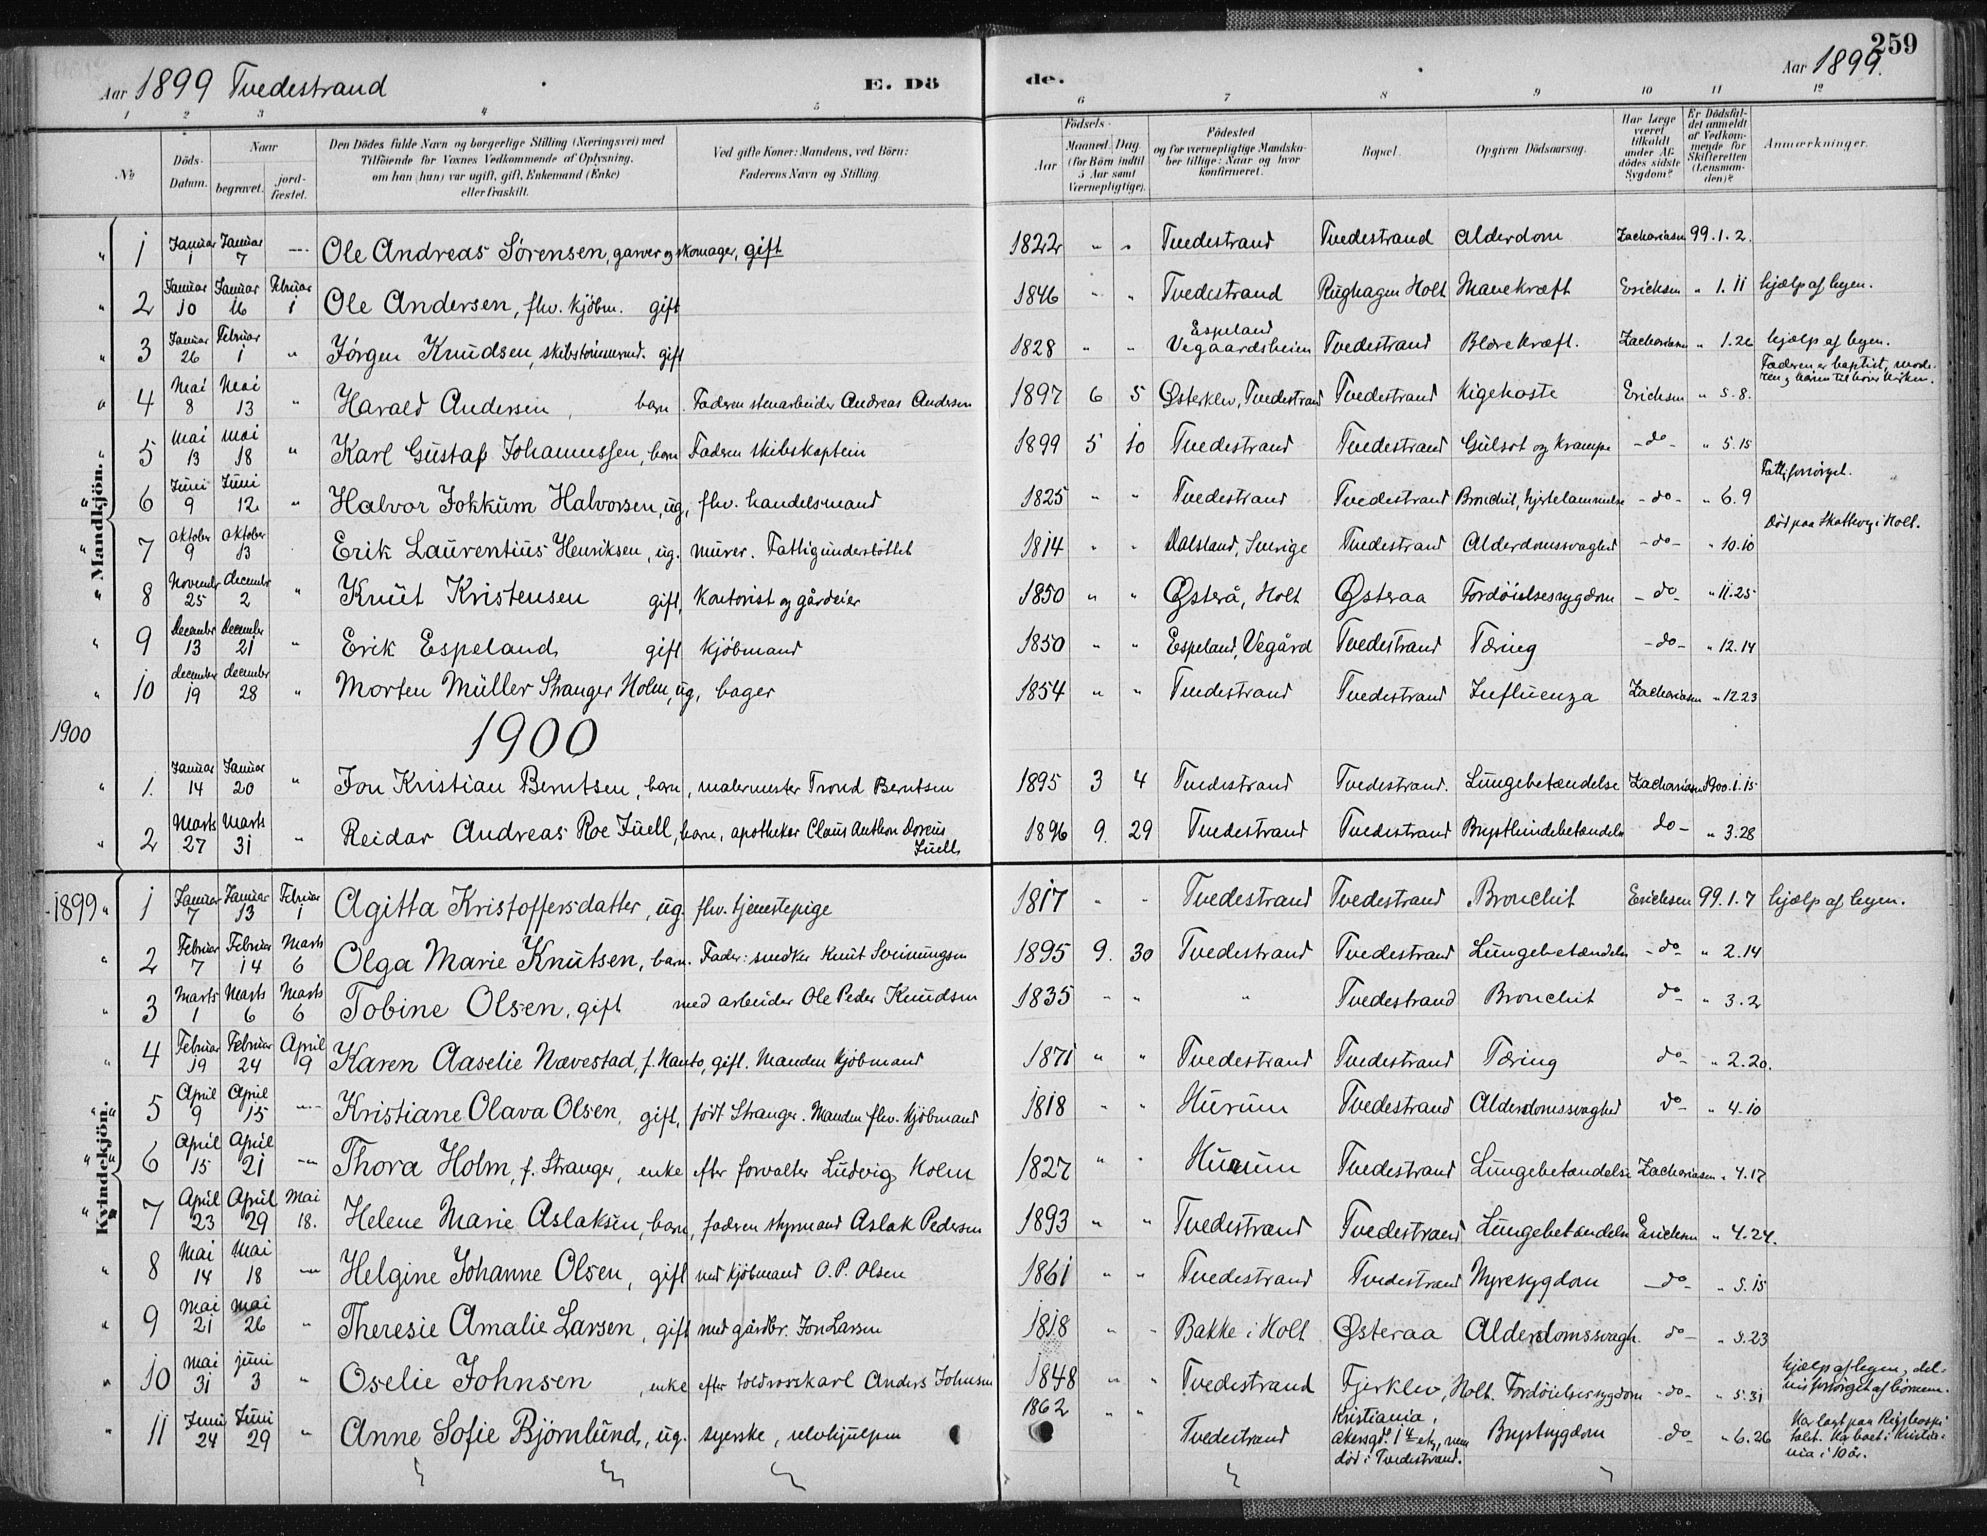 259
Aar 1899 Tvedestrand E. Dö de. Aar 1899.
1 2 3 4 5 6 7 8 9 10 11 12
No Döds-Datum. Naar begravet. jord-fæstet. Den Dödes fulde Navn og borgerlige Stilling (Næringsvei) med Tilföiende for Voxnes Vedkommende af Oplysning, om han (hun) var ugift, gift, Enkemand (Enke) eller fraskilt. Ved gifte Koner: Mandens, ved Börn: Faderens Navn og Stilling. Födsels- Aar Maaned. Dag. (for Börn indtil 5 Aar samt Værnepligtige). Födested og for værnepligtige Mandskaber tillige: Naar og hvor konfirmeret. Bopæl. Opgiven Dödsaarsag. Har Læge været tilkaldt under Afdödes sidste Sygdom? Er Dödsfaldet anmeldt af Vedkommende for Skifteretten (Lensmanden)? Anmærkninger.
Mandkjön.
" 1 Januar 1 Januar 7 — Ole Andreas Sörensen, garver og skomager, gift 1822 " " Tvedestrand Tvedestrand Alderdom Zachariasen 99.1.2.
" 2 Januar 10 Januar 16 Februar 1 Ole Andersen, fhv. kjöbm. gift 1846 " " Tvedestrand Rughagen Holt Mavekræft Ericksen " 1.11 hjælp af legen.
" 3 Januar 26 Februar 1 " Jörgen Knudsen, skibstömmermd. gift 1828 " " Espeland Vegaardsheien Tvedestrand Blærekræft. Zachariasen " 1.26 hjælp af legen.
" 4 Mai 8 Mai 13 " Harald Andersen, barn. Faderen stenarbeider Andreas Andersen 1897 6 5 Østerklev, Tvedestrand Tvedestrand Kigehoste Ericksen " 5.8. Faderen er baptist, moderen og börn tilhörer kirken.
5 Mai 13 Mai 18 " Karl Gustaf Johannessen, barn Faderen skibskaptein 1899 5 10 Tvedestrand Tvedestrand Gulsot og krampe -do- " 5.15
" 6 Juni 9 Juni 12 " Halvor Jokkum Halvorsen, ug, fhv. handelsmand 1825 " " Tvedestrand Tvedestrand Bronchit, hjertelammelse -do- " 6.9 Fattigforsörget.
" 7 Oktober 9 Oktober 13 Erik Laurentius Henriksen, ug. murer. Fattigunderstöttet 1814 " " Dalsland, Sverige Tvedestrand Alderdomssvaghed -do- " 10.10 Död paa Skattevog i Holt.
" 8 November 25 december 2 " Knut Kristensen gift, Kontorist og gårdeier 1850 " " Østerå, Holt Østeraa Fordöielsessygdom -do- " 11.25
" 9 December 13 december 21 " Erik Espeland, gift kjöbmand 1850 " " Espeland, Vegård Tvedestrand Tæring -do- " 12.14
" 10 december 19 december 28 " Morten Müller Stranger Holm, ug, bager 1854 " " Tvedestrand Tvedestrand Influenza Zachariasen " 12.23
1900 1900
" 1. Januar 14 Januar 20 " Jon Kristian Berntsen, barn, malermester Trond Berntsen 1895 3 4 Tvedestrand Tvedestrand. Lungebetændelse Zachariasen 1900.1.15
" 2 Marts 27 Marts 31 " Reidar Andreas Roe Juell, barn, apotheker Claus Anthon Juell 1896 9. 29 Tvedestrand Tvedestrand Brysthindebetændelse do- " 3.28
Kvindekjön.
1899 " 1 Januar 7 Januar 13 Februar 1 Agitta Kristoffersdatter, ug. fhv. tjenestepige 1817 " " Tvedestrand Tvedestrand Bronchit Ericksen 99.1.7 hjælp af legen.
" 2 Februar 7 Februar 14 Marts 6 Olga Marie Knutsen, barn. Fader: smeden Knut Sveinungsen 1895 9. 30 Tvedestrand Tvedestrand Lungebetændelse -do- " 2.14
" 3 Marts 1 Marts 6 Marts 6 Tobine Olsen, gift med arbeider Ole Peder Knudsen 1835 " " " Tvedestrand Bronchit do- " 3.2
" 4 Februar 19 Februar 24 April 9 Karen Aaselie Nævestad, f. Hanto, gift. Manden kjöbmand 1871 " " Tvedestrand Tvedestrand Tæring do- " 2.20.
5 April 9 April 15 — Kristiane Olava Olsen, gift, födt Stranger. Manden fhv. kjöbmand 1818 " " Hurum Tvedestrand Alderdomssvaghed do- " 4.10
6 April 15 April 21 — Thora Holm, f. Stranger, enke efter forvalter Ludvig Holm 1827 " " Hurum Tvedestrand Lungebetændelse Zachariasen " 4.17
7 April 23 April 29 Mai 18. Helene Marie Aslaksen, barn, faderen styrmand Aslak Pedersen 1893 " " Tvedestrand Tvedestrand Lungebetændelse Ericksen " 4.24.
" 8 Mai 14 Mai 18 — Helgine Johanne Olsen, gift med kjöbmand O. P. Olsen 1861 " " Tvedestrand Tvedestrand Nyresygdom -do- " 5.15
" 9 Mai 21 Mai 26 " Theresie Amalie Larsen, gift med gårdbr. Jon Larsen 1818 " " Bakke i Holt Østeraa Alderdomssvagh. do- " 5.23
" 10 Mai 31 juni 3 " Oselie Johnsen, enke efter toldroerskarl Anders Johnsen 1848 " " Tvedestrand Fjerklev, Holt. Fordöielsessygdom -do- " 5.31 hjælp af legen, delvis forsörget af börnene.
" 11 Juni 24 Juni 29 " Anne Sofie Björnlund, ug. syerske, selvhjulpen 1862 " " Tvedestrand Kristiania, Akersgd. 14 etg, men död i Tvedestrand. Brystsygdom -do- " 6.26 Har lagt paa Rigshospitalet. Har boet i Kristiania i 10 år.